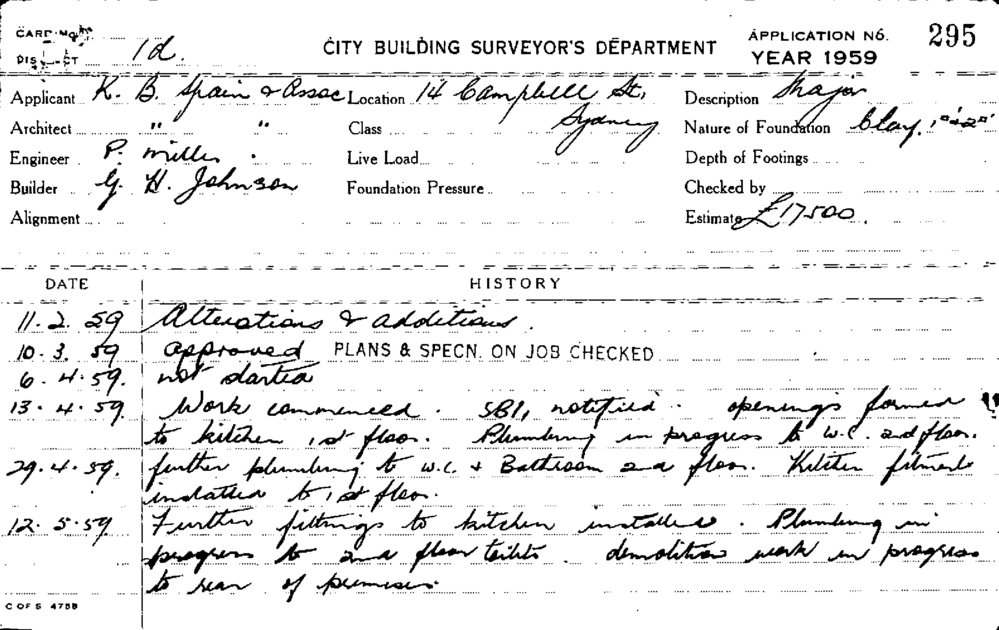 CARD No.
DISTRICT 1d.
CITY BUILDING SURVEYOR'S DEPARTMENT
APPLICATION No. 295
YEAR 1959
Applicant K. B. Spain & Assoc Location 14 Campbell St, Sydney Description Major
Architect " " Class Nature of Foundation Clay, 1"&2"
Engineer P. Miller. Live Load Depth of Footings
Builder G. H. Johnson Foundation Pressure Checked by
Alignment Estimate £17500.
DATE HISTORY
11. 2. 59 Alterations & additions.
10. 3. 59 approved PLANS & SPECN. ON JOB CHECKED
6. 4. 59. not started
13. 4. 59. Work commenced. SBI, notified. openings formed
to kitchen 1st floor. Plumbing in progress to W.C. 2nd floor.
29. 4. 59. further plumbing to W.C. & Bathroom 2nd floor. Kitchen fitments
installed to 1st floor.
12. 5. 59 Further fittings to kitchen installed. Plumbing in
progress to 2nd floor toilets. demolition work in progress
to rear of premises.
C OF S 475B